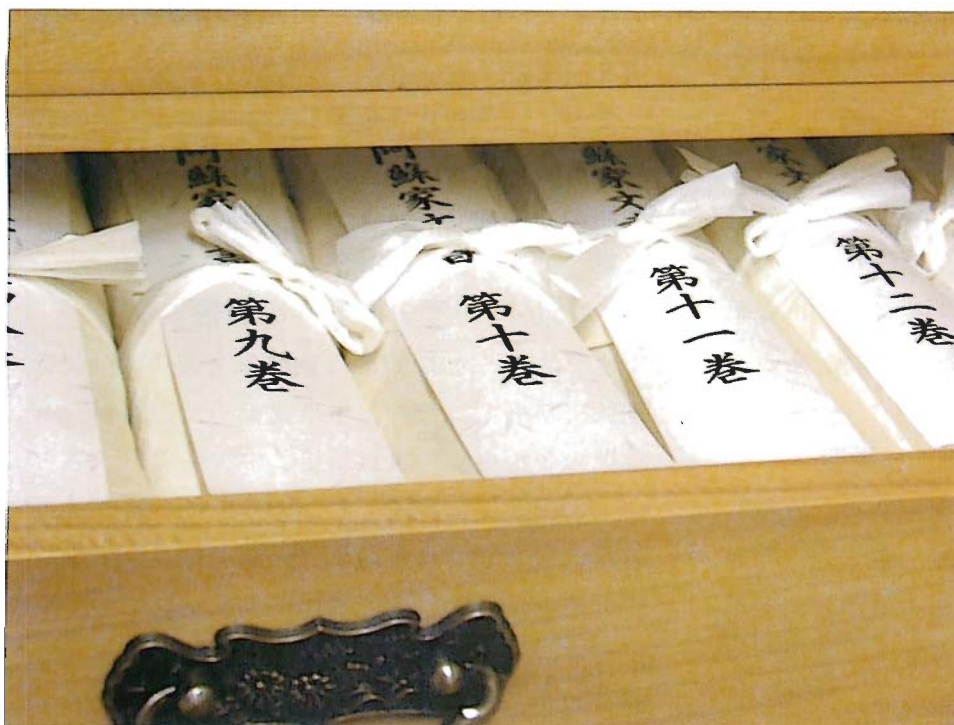 阿蘇家
第九巻
阿蘇家文書
第十巻
蘇家文
第十一巻
家文
第十二巻